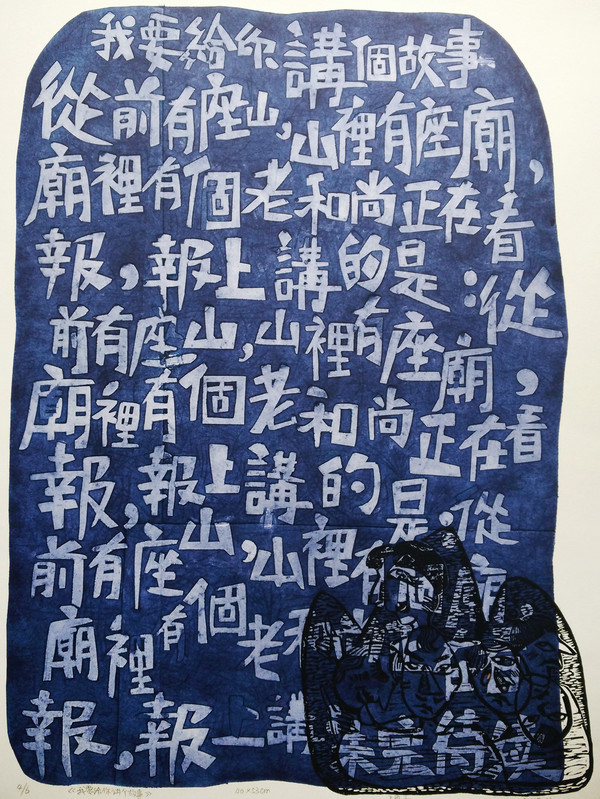 我要給你講個故事
從前有座山,山裡有座廟,
廟裡有個老和尚正在看
報,報上講的是:從
前有座山,山裡有座廟,
廟裡有個老和尚正在看
報,報上講的是,從
前有座山,山裡有
廟裡有個老和
報,報上講 完待
4/6 《我要给你讲个故事》